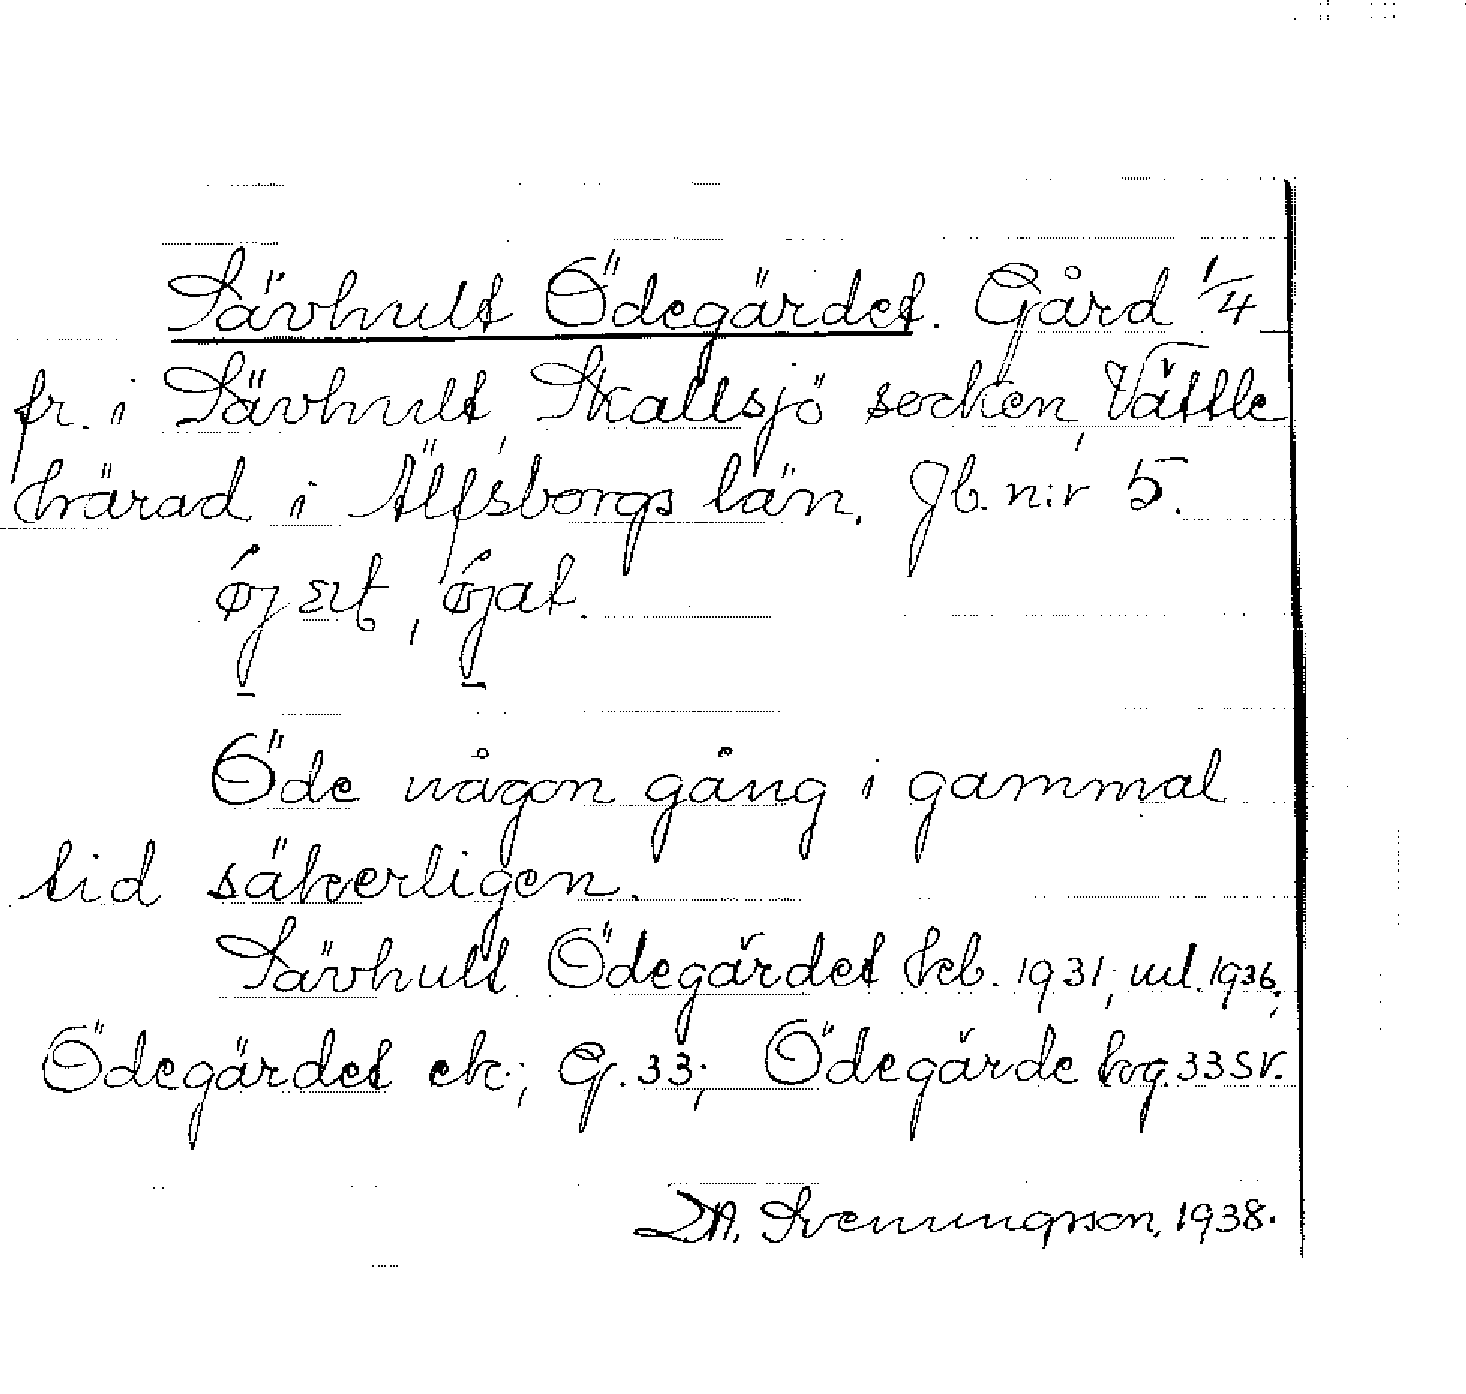 Sävhult Ödegärdet. Gård 1/4
fr. i Sävhult, Skallsjö socken, Vättle
härad i Älfsborgs län. Jb. n:r 5.
öjat.
Öde någon gång i gammal
tid säkerligen.
Sävhult Ödegärdet 1931; ml. 1936;
Ödegärdet ek.; G. 33; Ödegärde 33 SV.
Svenningsson, 1938.